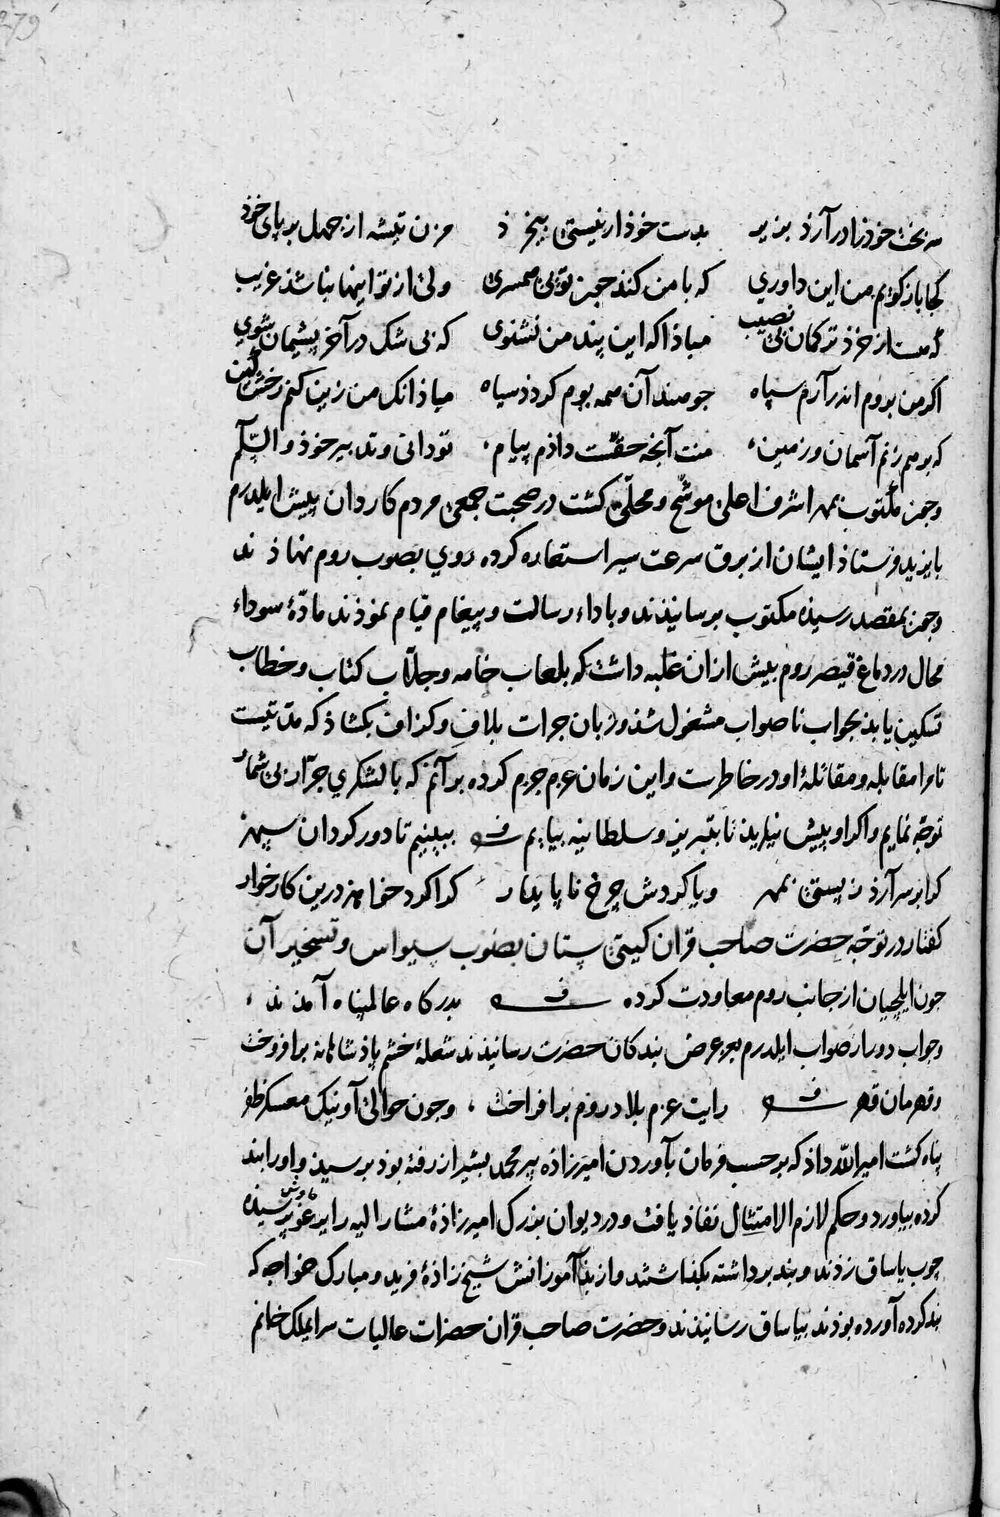 279
مه بخت خوذ را در آرذ بزیر بدست خوذ ار نیستی بیخرذ مزن تیشه از جهل بر پای خوذ
کجا باز کویم من این داوری که با من کند چون تویی همسری ولی از تو اینها نباشذ غریب
که هست از خرذ ترکمان بی نصیب مباذا که این پند من نشنوی که بی شک در آخر پشیمان شوی
اکر من بروم اندر آرم سپاه جو هند آن همه بوم کردذ سیاه میاذ آنک من زین کنم رخش کین
که بر هم زنم آسمان و زمین منت آنچه حقست داذم پیام تو دانی و تدبیر خوذ والسّلم
وجون مکتوب بمهر اشرف اعلی موشّح و محلّی کشت در صحبت جمعی مردم کاردان پیش ایلدرم
بایزید فرستاذ ایشان از برق سرعت سیر استعاره کرده روی بصوب روم نهاذند
وجون بمقصد رسیذه مکتوب برسانیذند و باداء رسالت و پیغام قیام نموذند مادّهٔ سوداء
محال در دماغ قیصر روم بیش از ان غلبه داشت که بلعاب خامه و جلّاب کتاب و خطاب
تسکین یابذ بجواب ناصواب مشغول شذ و زبان جرات بلاف و کزاف بکشاذ که مدتیست
تا مرا مقابله و مقاتلهٔ او در خاطرست و این زمان عزم جزم کرده بر آنم که با لشکری جرّار بی شمار
توجّه نمایم و اکر او پیش نیایذ تا بتبریز و سلطانیه بیایم ببینیم تا دور کردان سپهر
کرا بر سر آرذ ز پستی بمهر و یا کردش چرخ ناپایدار کرا کرد خواهذ درین کار خوار
کفتار در توجّه حضرت صاحب قران کیتی ستان بصوب سیواس و تسخیر آن
جون ایلچیان از جانب روم معاودت کرده بدرکاه عالمپناه آمدند
وجواب دور از صواب ایلدرم بعز عرض بندکان حضرت رسانیذند شعلهٔ خشم پاذشاهانه برافروخت
و قهرمان قهر رایت عزم بلاد روم برافراخت ، وجون حوالی آونیک معسکر ظفر
پناه کشت امیر الله داذ که بر حسب فرمان بآوردن امیرزاذه پیر محمد بشیراز رفته بود برسیذ و او را بند
کرده بیاورد و حکم لازم الامتثال نفاذ یافت و در دیوان بزرک امیرزاذهٔ مشار الیه را یرغو پرسیذه
چوب یاساق زدند و بند برداشته بکذاشتند و از بدآموزانش شیخ زاذهٔ فرید و مبارک خواجه که
بند کرده آورده بوذند بیاساق رسانیذند و حضرت صاحب قران حضرات عالیات سرایملک خانم